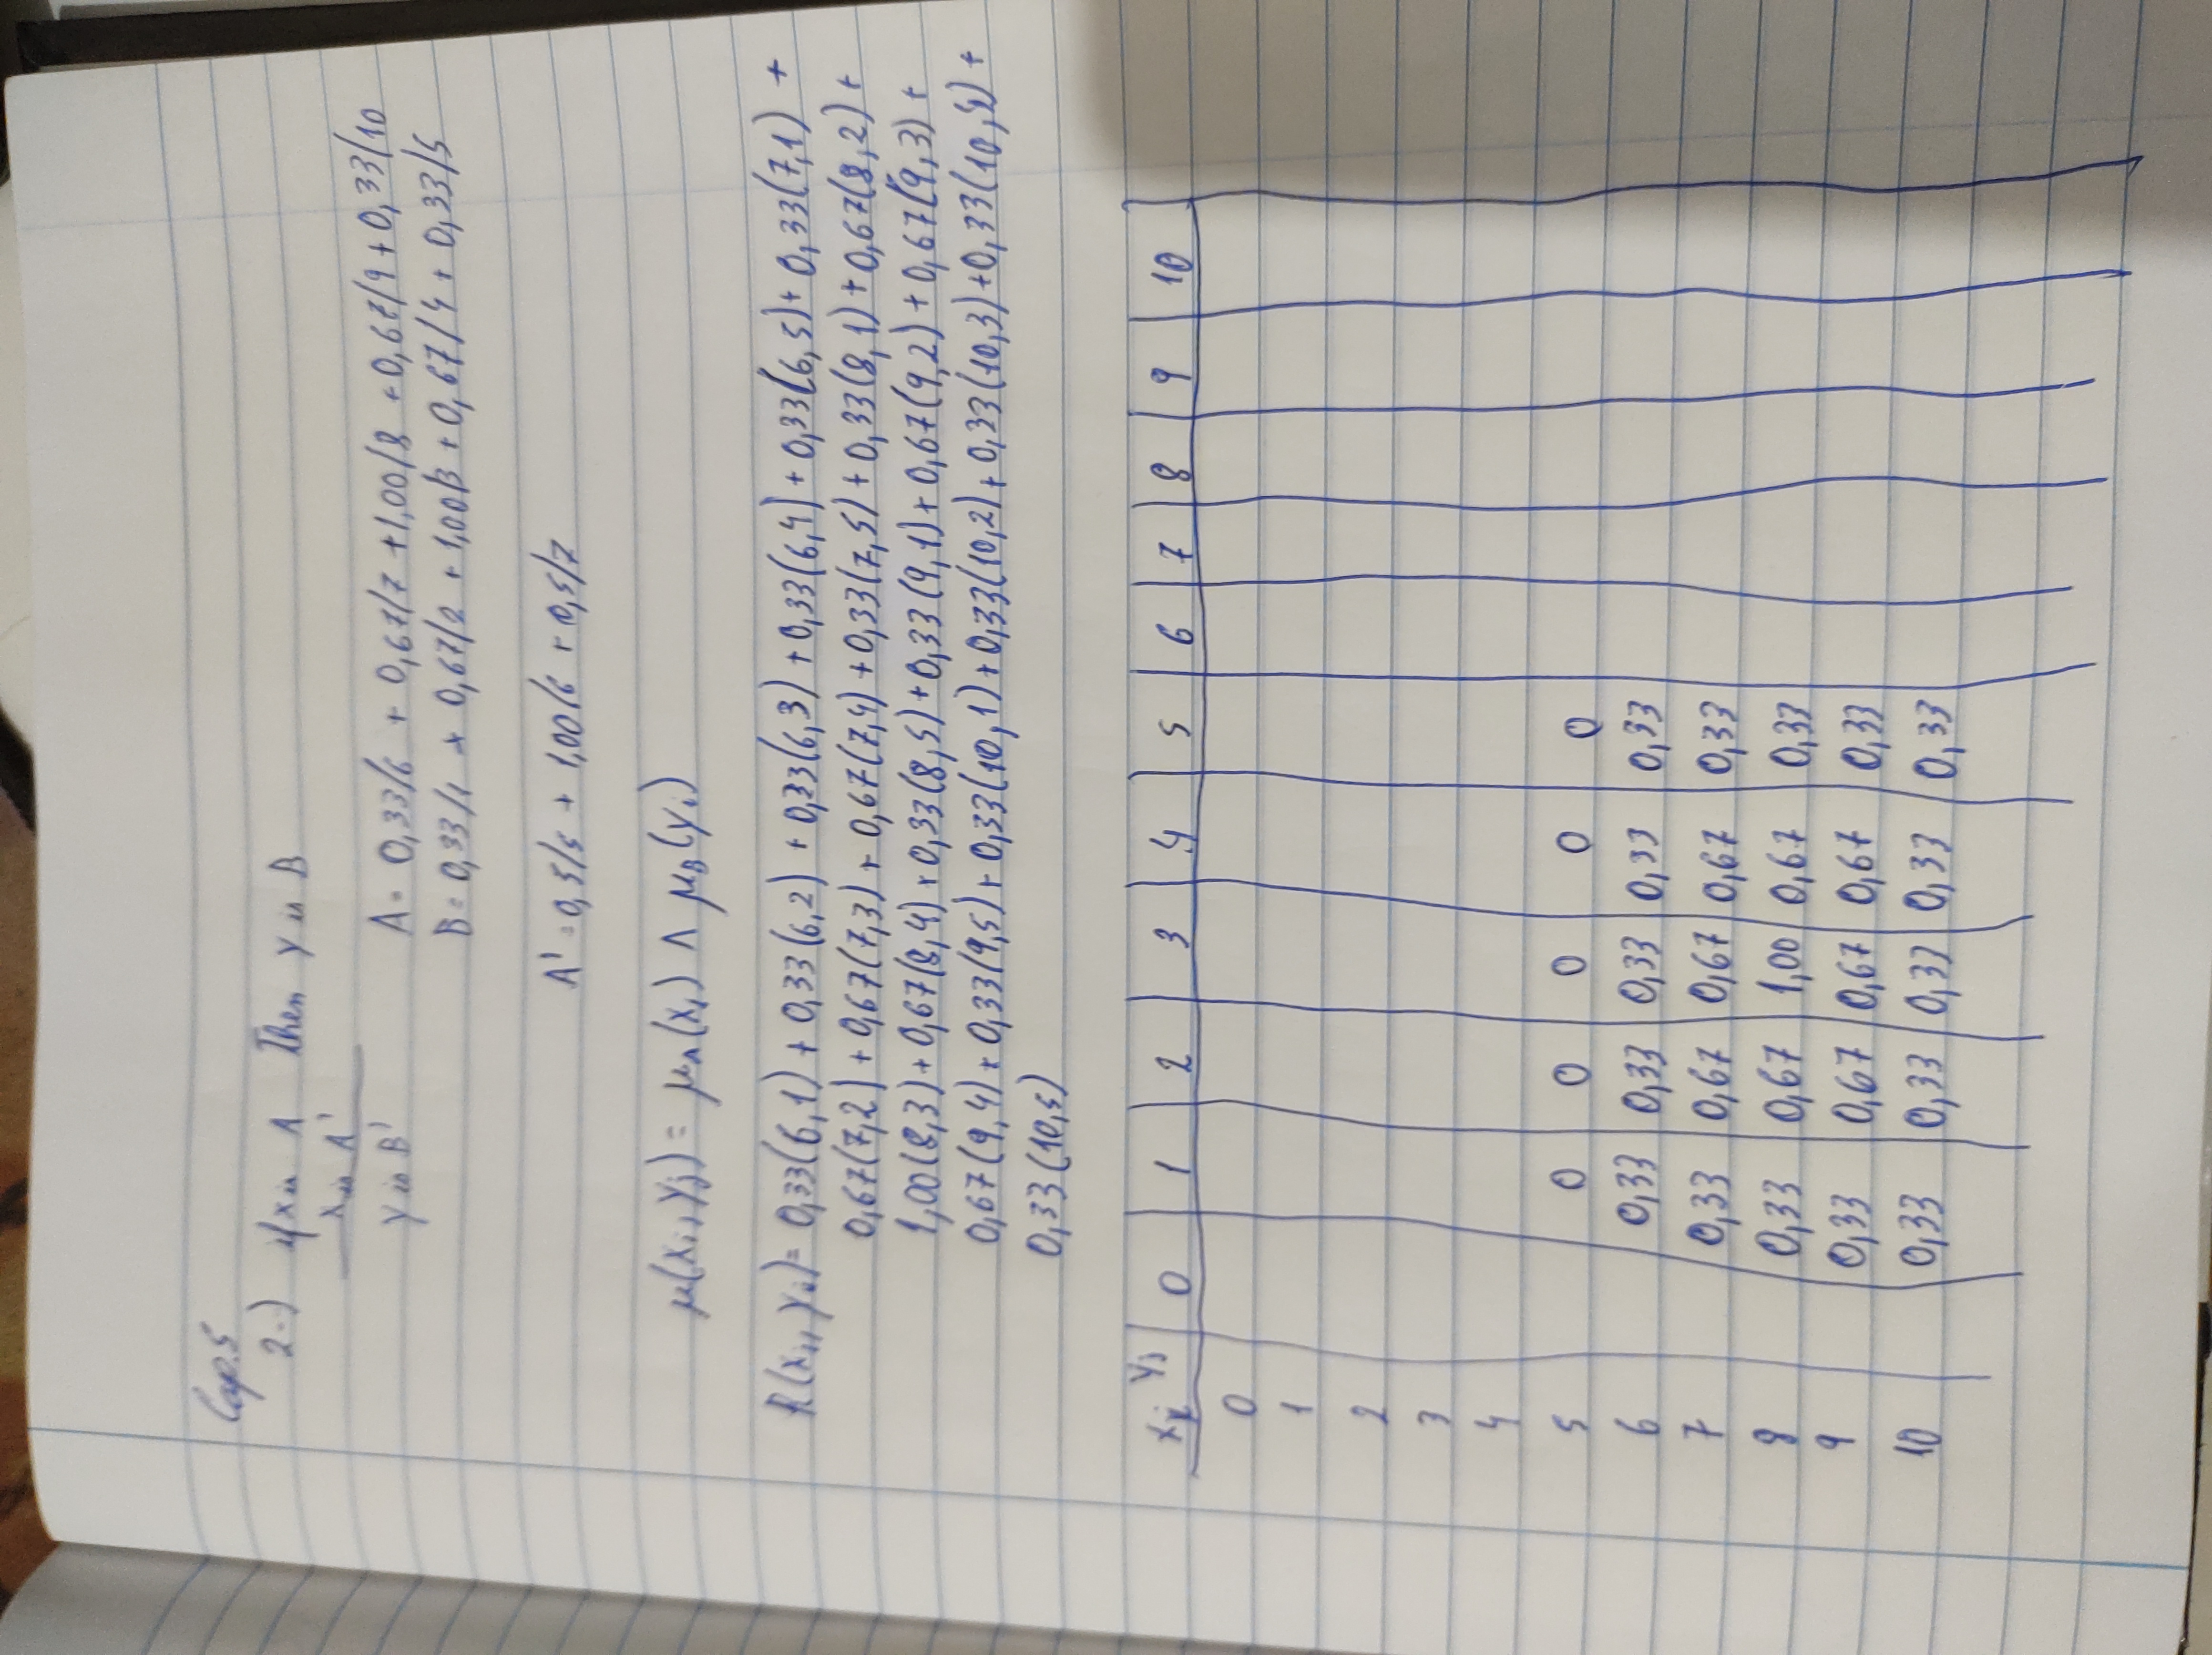 Cap.5
2-) if x is A Then y is B
x is A'
y is B'
A = 0,33/6 + 0,67/7 + 1,00/8 + 0,67/9 + 0,33/10
B = 0,33/1 + 0,67/2 + 1,00/3 + 0,67/4 + 0,33/5
A' = 0,5/5 + 1,00/6 + 0,5/7
μ(xi, yj) = μA(xi) ∧ μB(yi)
R(xi, yi) = 0,33(6,1) + 0,33(6,2) + 0,33(6,3) + 0,33(6,4) + 0,33(6,5) + 0,33(7,1) +
0,67(7,2) + 0,67(7,3) + 0,67(7,4) + 0,33(7,5) + 0,33(8,1) + 0,67(8,2) +
1,00(8,3) + 0,67(8,4) + 0,33(8,5) + 0,33(9,1) + 0,67(9,2) + 0,67(9,3) +
0,67(9,4) + 0,33(9,5) + 0,33(10,1) + 0,33(10,2) + 0,33(10,3) + 0,33(10,4) +
0,33(10,5)
xi yj 0 1 2 3 4 5 6 7 8 9 10
0
1
2
3
4
5 0 0 0 0 0
6 0,33 0,33 0,33 0,33 0,33
7 0,33 0,67 0,67 0,67 0,33
8 0,33 0,67 1,00 0,67 0,33
9 0,33 0,67 0,67 0,67 0,33
10 0,33 0,33 0,33 0,33 0,33